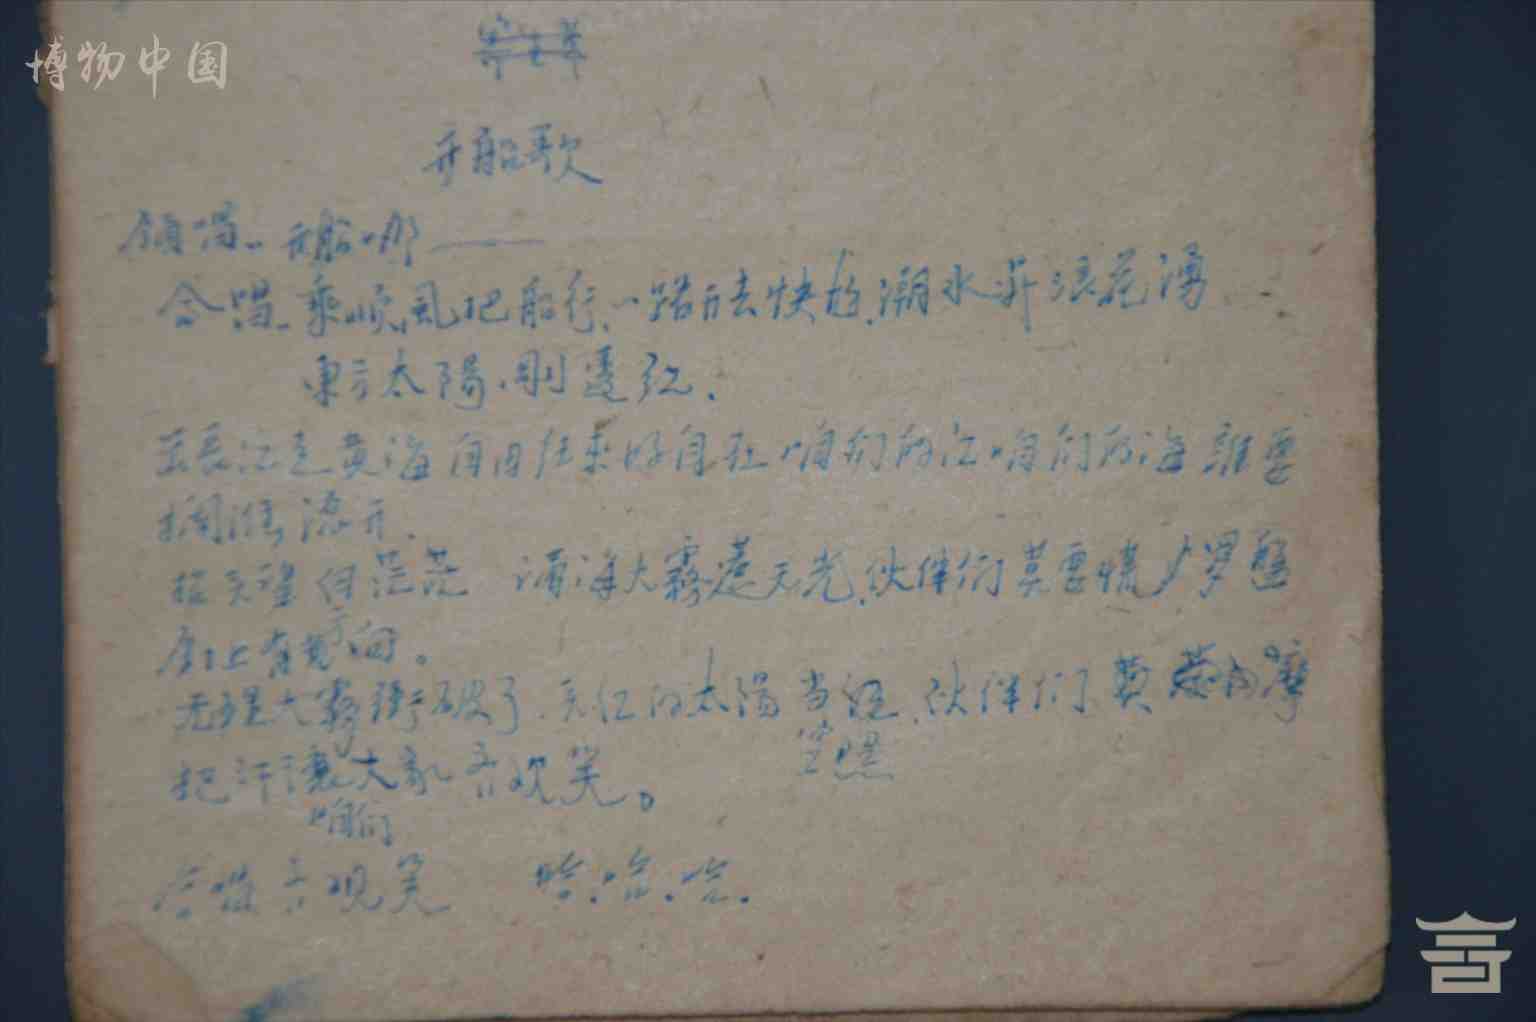 博物中国
开船歌
领唱：开船哪——
合唱：乘顺风把船行、一路方去快放，潮水升浪花湧
东方太陽，刚透红．
长江走黄海自由往来好自在咱们的江咱们的海誰要
攔誰滾开．
抬头望白茫茫 满海大霧遮天光，伙伴们莫要慌 罗盤
上有方向。
大霧衝破了，天红的太陽当空照，伙伴们莫
把大家齐欢笑。
咱们
合唱 齐欢笑 哈．哈．哈．